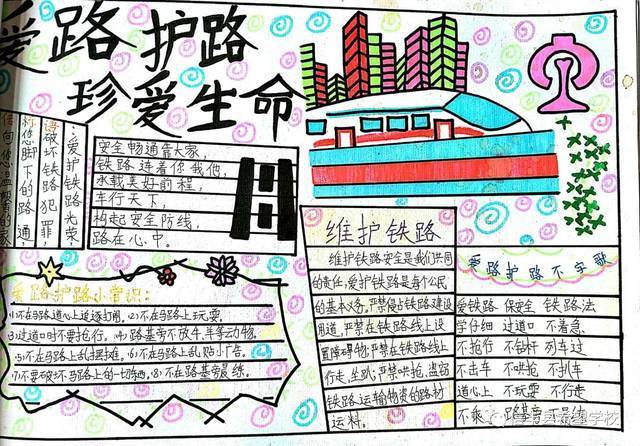 爱路护路
珍爱生命
爱护铁路光荣,
破坏铁路犯罪,
你脚下的路通
安全畅通靠大家,
铁路连着你我他,
承载美好前程,
车行天下,
构起安全防线,
路在心中。
爱路护路小常识:
1)不在马路道心上追逐打闹。(2)不在马路上玩耍。
3)过道口时不要抢行。(4)路基旁不放牛,羊等动物。
(5)不在马路上乱摆摊。(6)不在马路上乱贴小广告。
(7)不要破坏马路上的一切东西。(8)不在路基旁晨练。
维护铁路
维护铁路安全是我们共同
的责任,爱护铁路是每个公民
的基本义务,严禁侵占铁路建设
用道,严禁在铁路线上设
置障碍物,严禁在铁路线上
行走、坐卧,严禁哄抢、盗窃
铁路运输物资的路材
运料。
爱路护路不字歌
爱铁路 保安全 铁路法
学仔细 过道口 不着急
不抢行 不钻杆 列车过
不击车 不哄抢 不扒车
道心上 不玩耍 不行走
不乘 路基旁